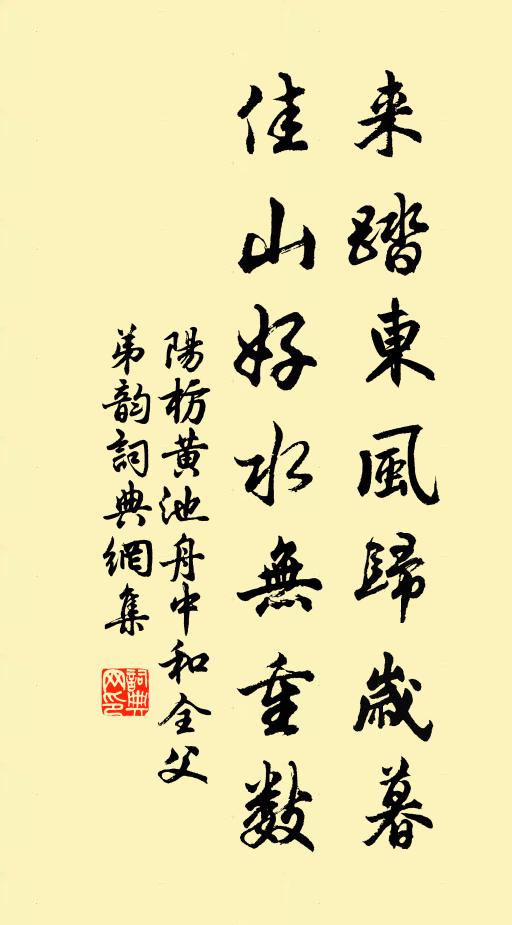 来踏東風歸歲暮
佳山好水無重數
陽枋黄池舟中和全父
弟韵詞典網集
詞典网印